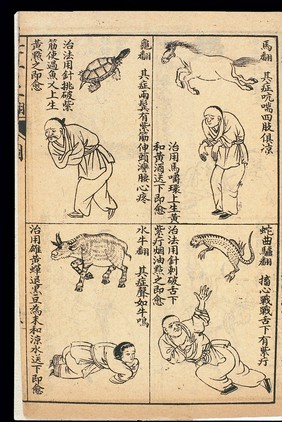 馬翻
其症吭喘四肢俱凉
治用馬嚼環上生黄
和黄酒送下即愈
龜翻
其症兩鬢有紫筋伸頭
心疼
治法用針挑破紫
筋使上過魚乂上生
黄㸃之即愈
蛇曲驢翻
播心戰戰舌下有紫疔
治法用針刺破舌下
紫疔烟油㸃之即愈
水牛翻
其症聲如牛鳴
治用雄黄蟬退黑豆為末和凉水送下即愈